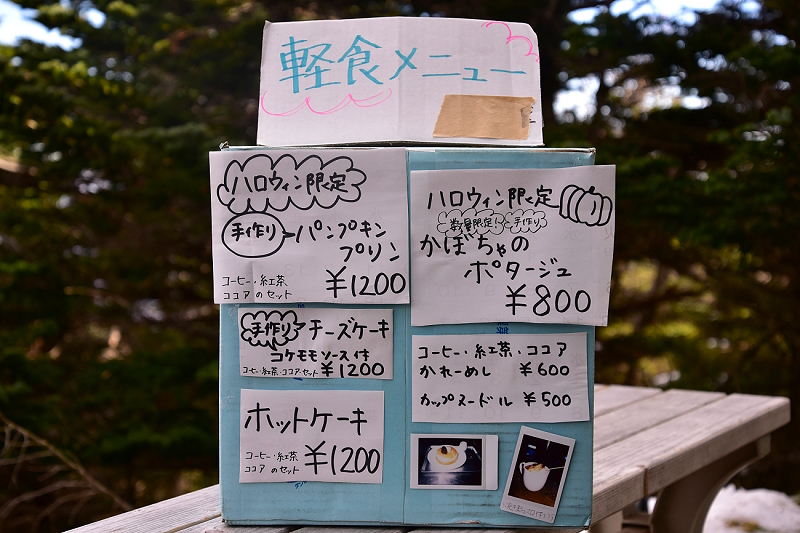 軽食メニュー
ハロウィン限定
手作り パンプキン
プリン
コーヒー・紅茶
ココアのセット ¥1200
手作り チーズケーキ
コケモモソース付
コーヒー・紅茶・ココアセット ¥1200
ホットケーキ
コーヒー・紅茶
ココアのセット ¥1200
ハロウィン限定
数量限定! 手作り
かぼちゃの
ポタージュ
¥800
コーヒー・紅茶・ココア
かれーめし ¥600
カップヌードル ¥500